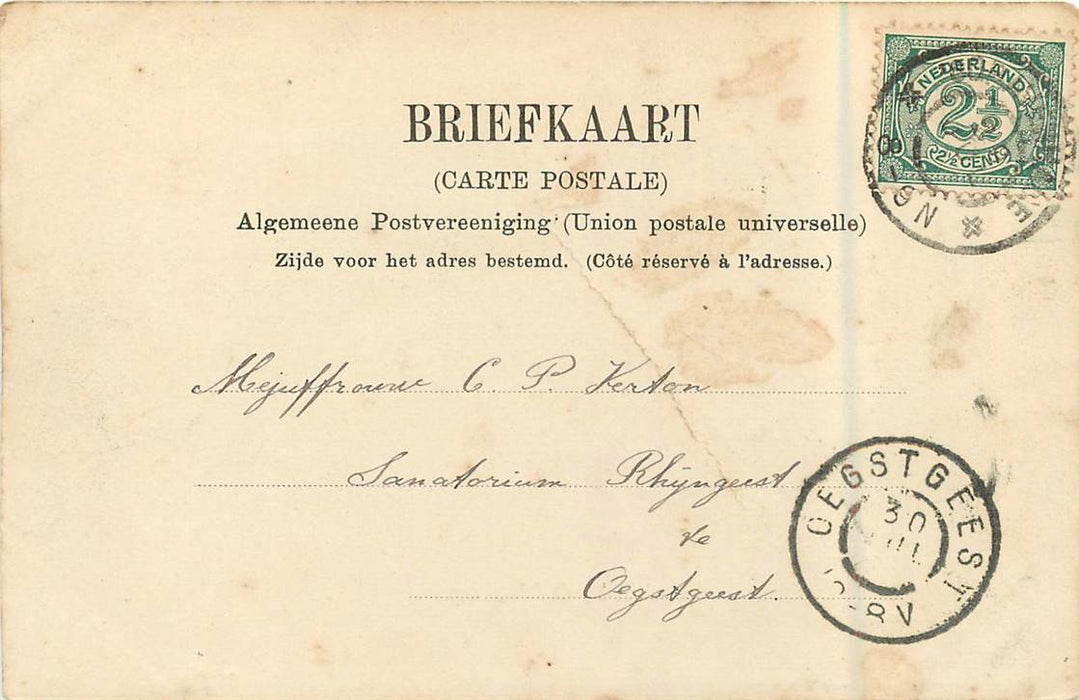 NEDERLAND
2 1/2
2 1/2 CENT
BRIEFKAART
(CARTE POSTALE)
Algemeene Postvereeniging (Union postale universelle)
Zijde voor het adres bestemd. (Côté réservé à l'adresse.)
Mejuffrouw C. P. Kerton
Sanatorium Rhijngeest
te
Oegstgeest.
OEGSTGEEST
30
JUL
8V